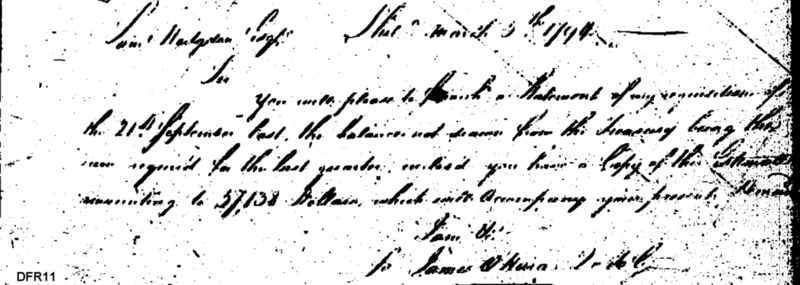 Saml Hodgdon Esqr Phila March 5th 1794
Sir
You will please to a Statement of my requisition of
the 21st September last, the balance not drawn from the Treasury being the
now required for the last quarter, inclosed you have a Copy of the Estimate
amounting to 57,138 Dollars, which will accompany your present
I am Sir
James O'Hara
DFR11